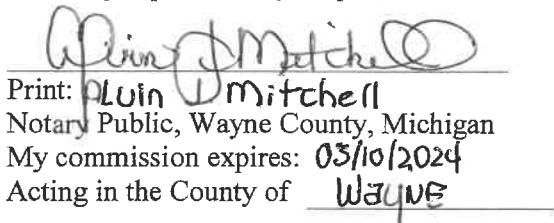 Alvin D Mitchell
Print: ALvin D Mitchell
Notary Public, Wayne County, Michigan
My commission expires: 03/10/2024
Acting in the County of Wayne